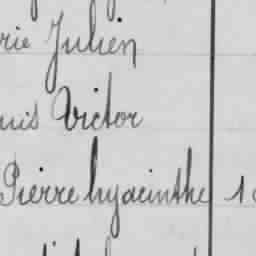 rie Julien
uis Victor
Pierre hyacinthe 1